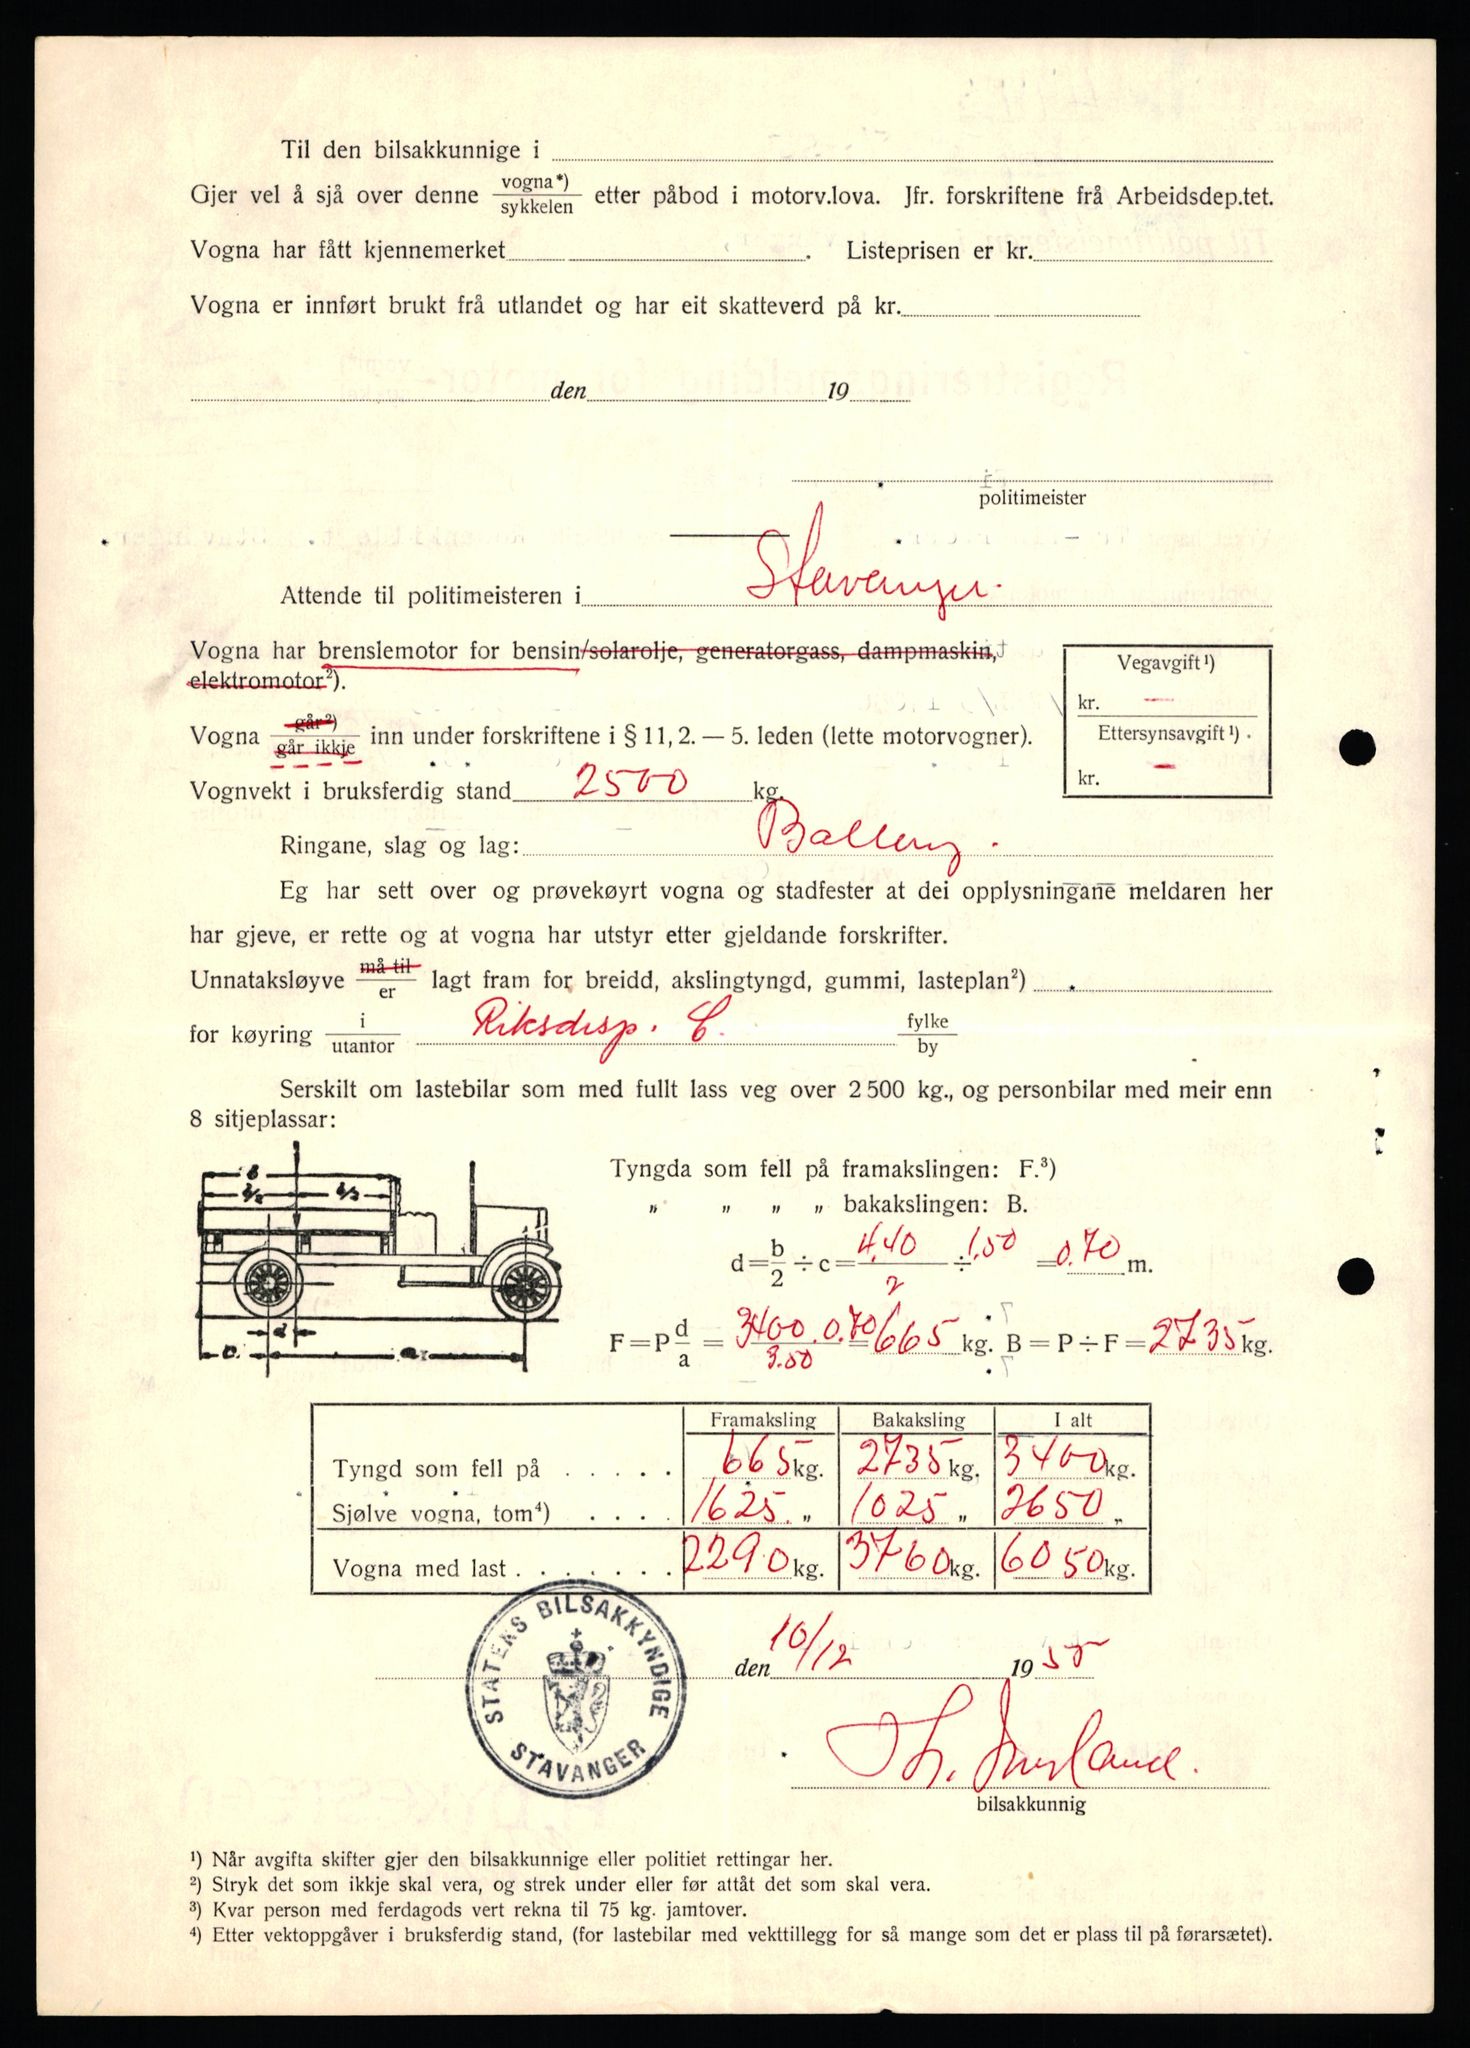 Til den bilsakkunnige i
Gjer vel å sjå over denne vogna*) / sykkelen etter påbod i motorv.lova. Jfr. forskriftene frå Arbeidsdep.tet.
Vogna har fått kjennemerket . Listeprisen er kr.
Vogna er innført brukt frå utlandet og har eit skatteverd på kr.
den 19
politimeister
Attende til politimeisteren i Stavanger.
Vogna har brenslemotor for bensin/solarolje, generatorgass, dampmaskin,
elektromotor²).
Vegavgift¹)
kr. —
Ettersynsavgift¹)
kr. —
Vogna går²) / går ikkje inn under forskriftene i § 11, 2. — 5. leden (lette motorvogner).
Vognvekt i bruksferdig stand 2500 kg.
Ringane, slag og lag: Ballong.
Eg har sett over og prøvekøyrt vogna og stadfester at dei opplysningane meldaren her
har gjeve, er rette og at vogna har utstyr etter gjeldande forskrifter.
Unnataksløyve må til / er lagt fram for breidd, akslingtyngd, gummi, lasteplan²)
for køyring i / utanfor Riksdisp. C. fylke / by
Serskilt om lastebilar som med fullt lass veg over 2 500 kg., og personbilar med meir enn
8 sitjeplassar:
b
b/2 b/2
d
c a
Tyngda som fell på framakslingen: F.³)
„ „ „ „ bakakslingen: B.
d = b/2 ÷ c = 4,40/2 ÷ 1.50 = 0.70 m.
F = P d/a = 3400.0.70/3.50 = 665 kg. B = P ÷ F = 2735 kg.
Framaksling Bakaksling I alt
Tyngd som fell på . . . . . 665 kg. 2735 kg. 3400 kg.
Sjølve vogna, tom⁴) . . . . 1625 „ 1025 „ 2650 „
Vogna med last . . . . . . . 2290 kg. 3760 kg. 6050 kg.
STATENS BILSAKKYNDIGE
STAVANGER
den 10/12 1955
bilsakkunnig
¹) Når avgifta skifter gjer den bilsakkunnige eller politiet rettingar her.
²) Stryk det som ikkje skal vera, og strek under eller før attåt det som skal vera.
³) Kvar person med ferdagods vert rekna til 75 kg. jamtover.
⁴) Etter vektoppgåver i bruksferdig stand, (for lastebilar med vekttillegg for så mange som det er plass til på førarsætet).